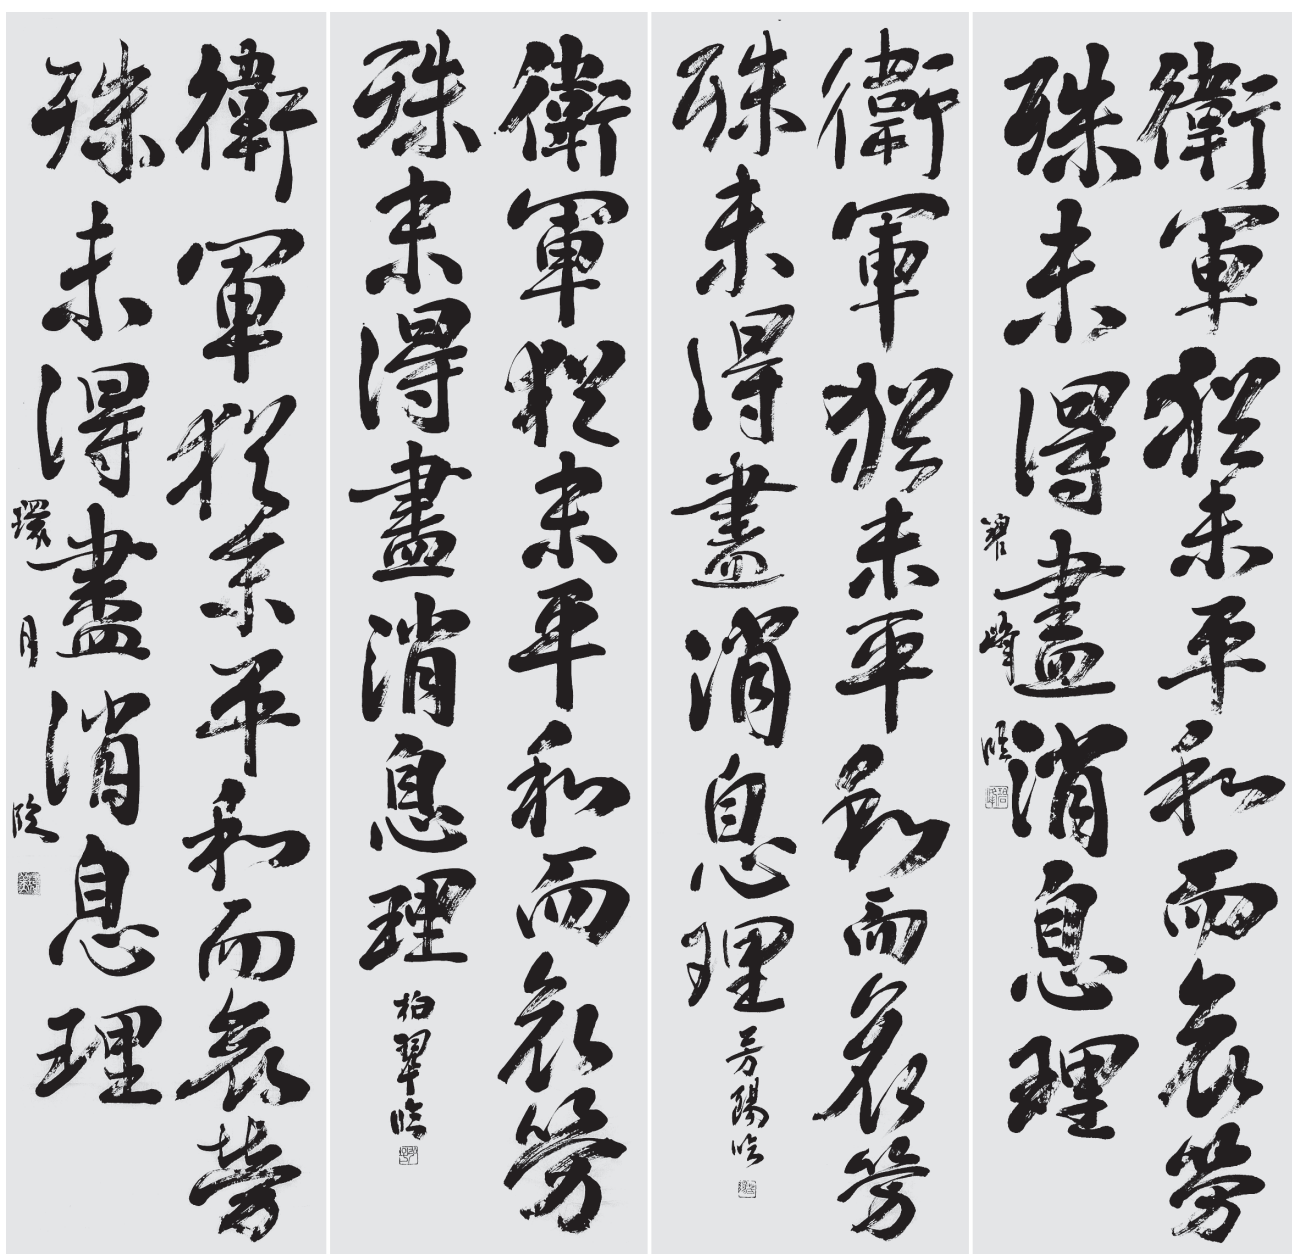 衛軍猶未平和而哀勞
殊未得盡消息理
峰臨
衛軍猶未平和而哀勞
殊未得盡消息理
芳陽臨
衛軍猶未平和而哀勞
殊未得盡消息理
柏翠臨
衛軍猶未平和而哀勞
殊未得盡消息理
環月臨